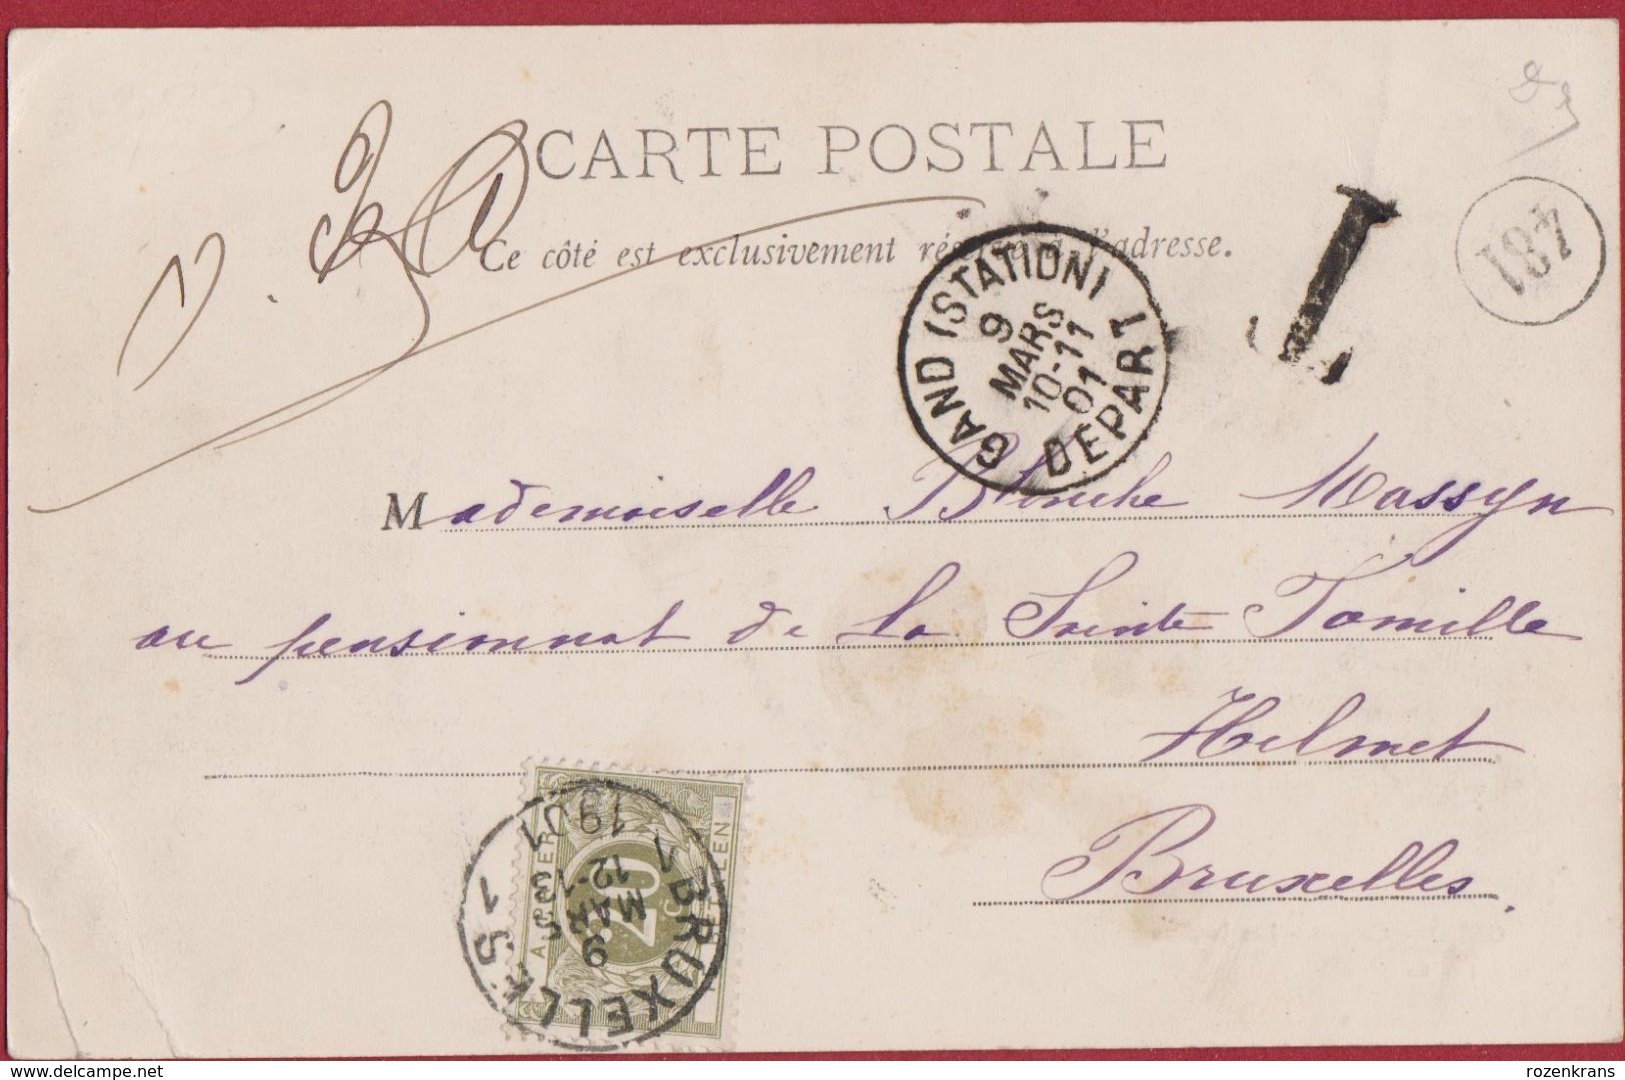 CARTE POSTALE
Ce côté est exclusivement réservé à l'adresse.
GAND (STATION)
9
MARS
10-11
01
DEPART
T
481
Mademoiselle Blanche Massyn
au pensionnat de La Sainte Famille
Helmet
Bruxelles.
20
BRUXELLES
1901
12-1
MARS
9
delcampe.net
rozenkrans